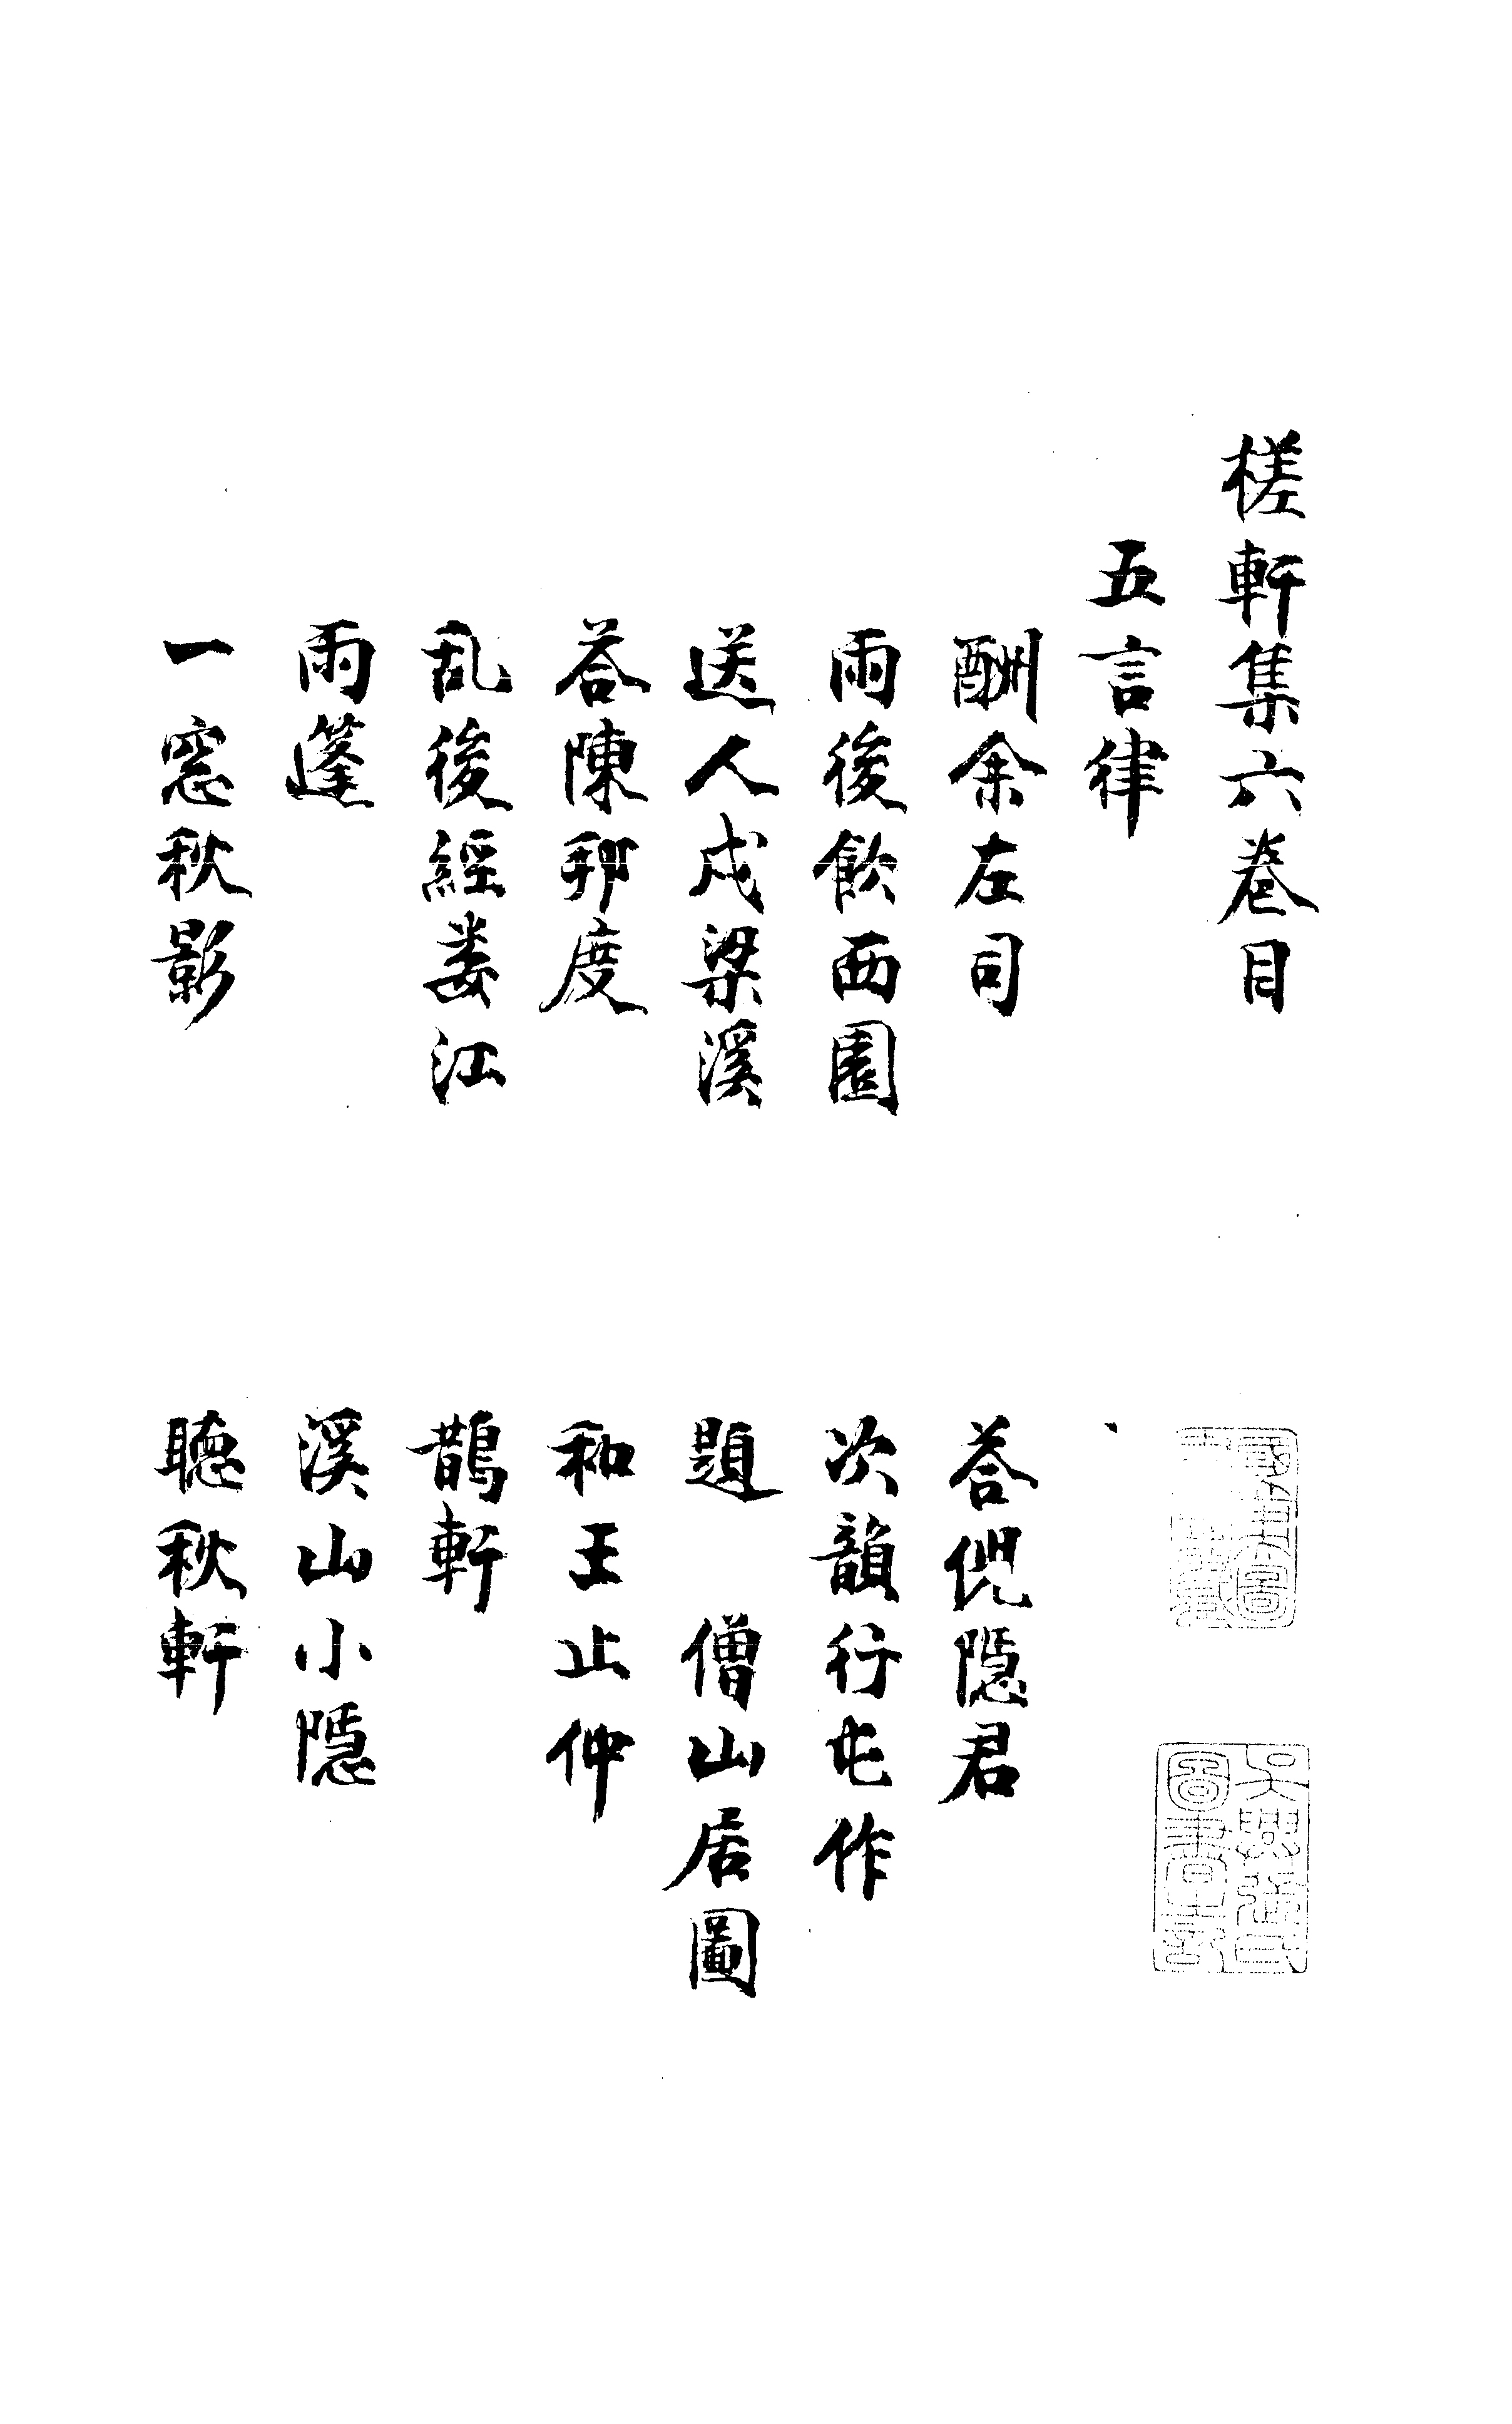 槎軒集六卷目
五言律
酬余左司　荅倪隐君
雨後飲西園　次韻行屯作
送人戍梁溪　題　僧山居圖
荅陳邦度　和王止仲
乱後經婁江　鵲軒
雨篷　溪山小隱
一窓秋影　聴秋軒
吳興張氏